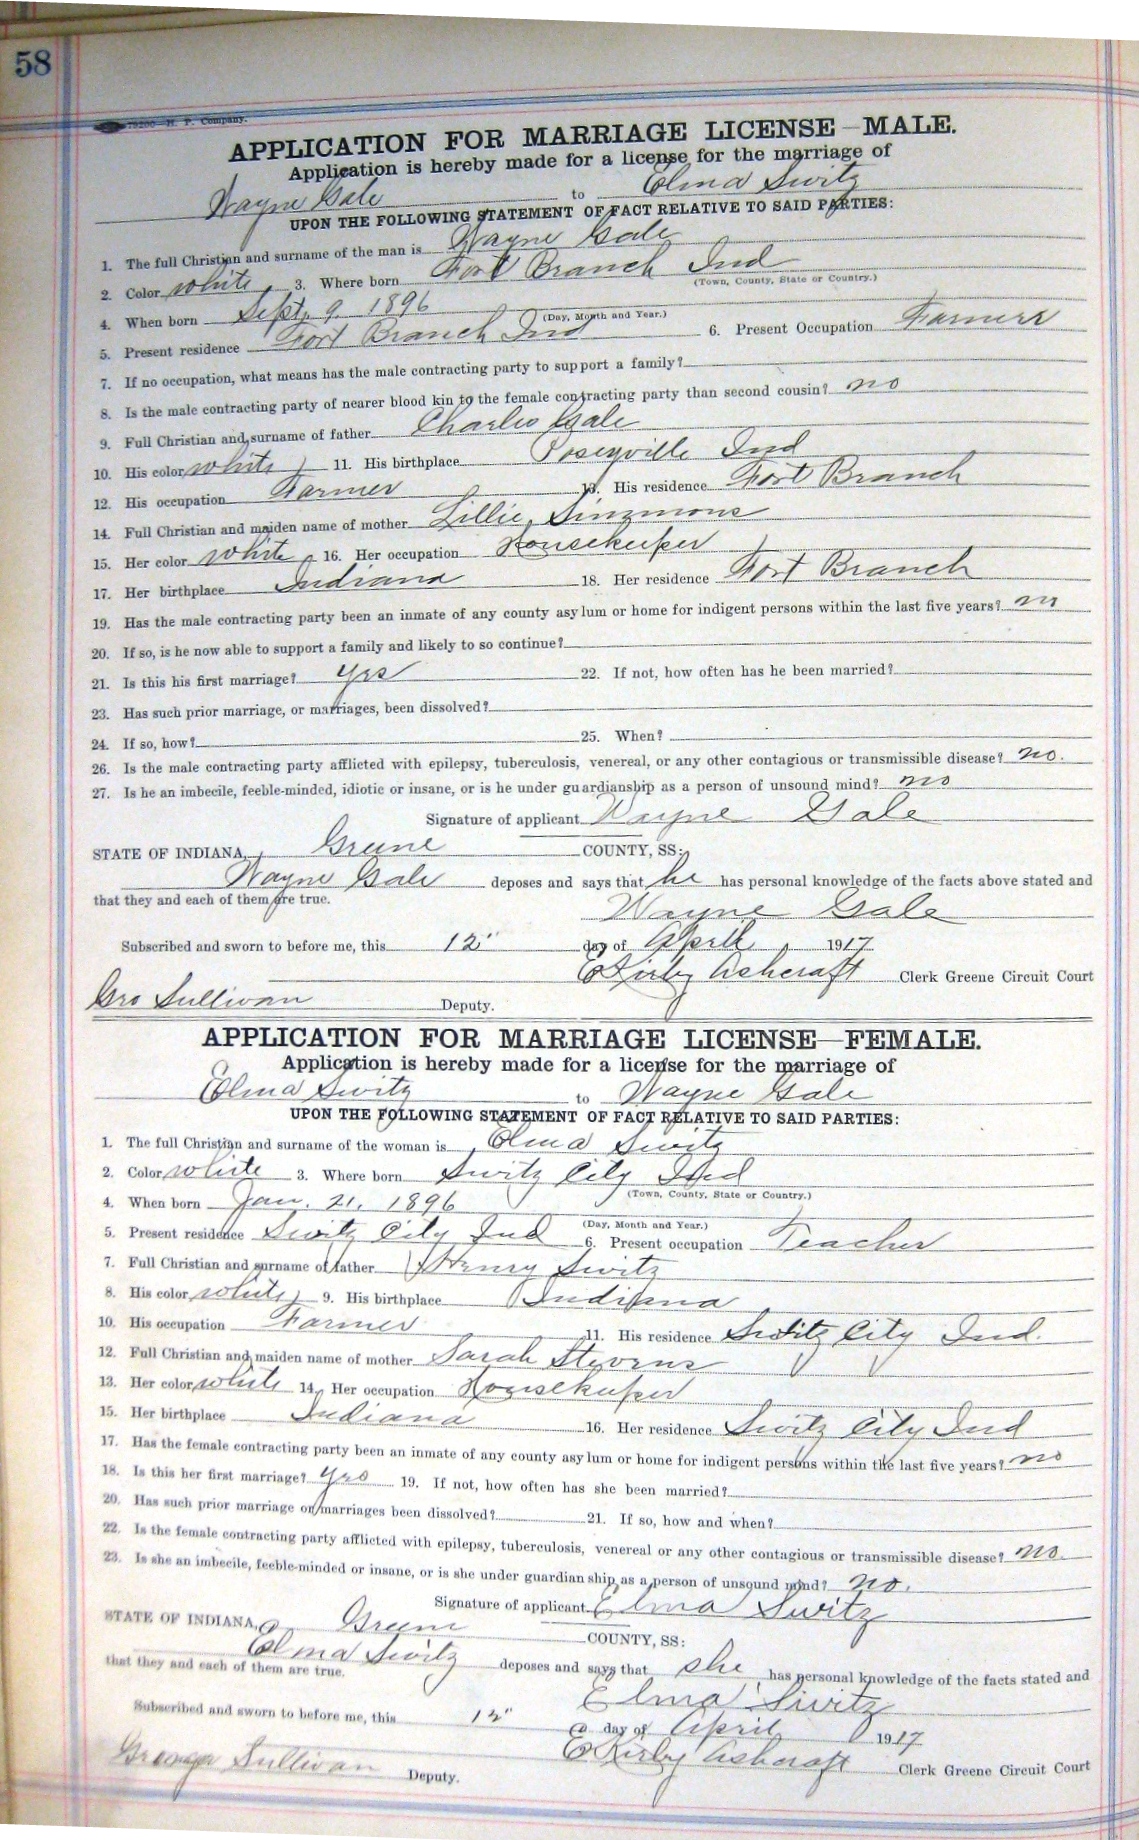 58
79200—H. P. Company.
APPLICATION FOR MARRIAGE LICENSE—MALE.
Application is hereby made for a license for the marriage of
Wayne Gale to Elma Switz
UPON THE FOLLOWING STATEMENT OF FACT RELATIVE TO SAID PARTIES:
1. The full Christian and surname of the man is Wayne Gale
2. Color white 3. Where born Fort Branch Ind
(Town, County, State or Country.)
4. When born Sept. 9. 1896
(Day, Month and Year.)
5. Present residence Fort Branch Ind 6. Present Occupation Farmer
7. If no occupation, what means has the male contracting party to support a family?
8. Is the male contracting party of nearer blood kin to the female contracting party than second cousin? no
9. Full Christian and surname of father Charles Gale
10. His color white 11. His birthplace Poseyville Ind
12. His occupation Farmer 13. His residence Fort Branch
14. Full Christian and maiden name of mother Lillie Simmons
15. Her color white 16. Her occupation Housekeeper
17. Her birthplace Indiana 18. Her residence Fort Branch
19. Has the male contracting party been an inmate of any county asylum or home for indigent persons within the last five years? no
20. If so, is he now able to support a family and likely to so continue?
21. Is this his first marriage? yes 22. If not, how often has he been married?
23. Has such prior marriage, or marriages, been dissolved?
24. If so, how? 25. When?
26. Is the male contracting party afflicted with epilepsy, tuberculosis, venereal, or any other contagious or transmissible disease? no.
27. Is he an imbecile, feeble-minded, idiotic or insane, or is he under guardianship as a person of unsound mind? no
Signature of applicant Wayne Gale
STATE OF INDIANA, Greene COUNTY, SS:
Wayne Gale deposes and says that he has personal knowledge of the facts above stated and
that they and each of them are true.
Wayne Gale
Subscribed and sworn to before me, this 12" day of April 1917
E Kirby Ashcraft Clerk Greene Circuit Court
Geo Sullivan Deputy.
APPLICATION FOR MARRIAGE LICENSE—FEMALE.
Application is hereby made for a license for the marriage of
Elma Switz to Wayne Gale
UPON THE FOLLOWING STATEMENT OF FACT RELATIVE TO SAID PARTIES:
1. The full Christian and surname of the woman is Elma Switz
2. Color white 3. Where born Switz City Ind
(Town, County, State or Country.)
4. When born Jan. 21, 1896
(Day, Month and Year.)
5. Present residence Switz City Ind 6. Present occupation Teacher
7. Full Christian and surname of father Henry Switz
8. His color white 9. His birthplace Indiana
10. His occupation Farmer 11. His residence Switz City Ind.
12. Full Christian and maiden name of mother Sarah Stevens
13. Her color white 14. Her occupation Housekeeper
15. Her birthplace Indiana 16. Her residence Switz City Ind
17. Has the female contracting party been an inmate of any county asylum or home for indigent persons within the last five years? no
18. Is this her first marriage? yes 19. If not, how often has she been married?
20. Has such prior marriage or marriages been dissolved? 21. If so, how and when?
22. Is the female contracting party afflicted with epilepsy, tuberculosis, venereal or any other contagious or transmissible disease? no.
23. Is she an imbecile, feeble-minded or insane, or is she under guardianship as a person of unsound mind? no.
Signature of applicant Elma Switz
STATE OF INDIANA, Greene COUNTY, SS:
Elma Switz deposes and says that she has personal knowledge of the facts stated and
that they and each of them are true.
Elma Switz
Subscribed and sworn to before me, this 12" day of April 1917
E Kirby Ashcraft Clerk Greene Circuit Court
Sullivan Deputy.